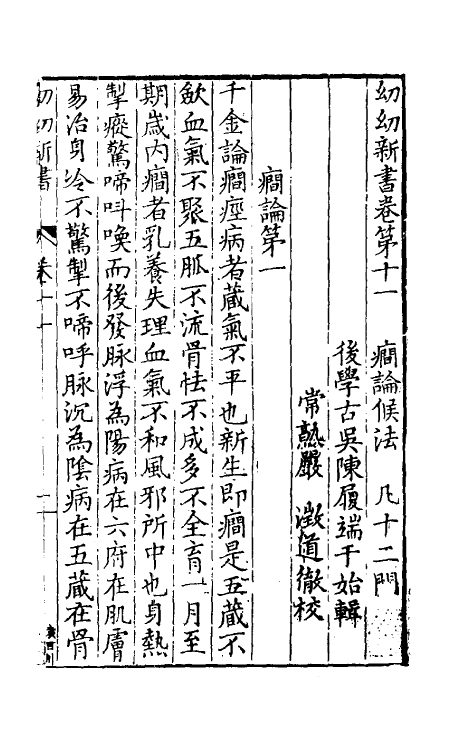 幼幼新書卷第十一 癎論候法 凡十二門
後學古吳陳履端于始輯
常熟嚴澂道徹校
癎論第一
千金論癎痙病者藏氣不平也新生即癎是五藏不
歛血氣不聚五脈不流骨怯不成多不全育一月至
期歲內癎者乳養失理血氣不和風邪所中也身熱
掣瘲驚啼呌喚而後發脈浮為陽病在六府在肌膚
易治身冷不驚掣不啼呼脈沉為陰病在五藏在骨
幼幼新書 卷十一 一